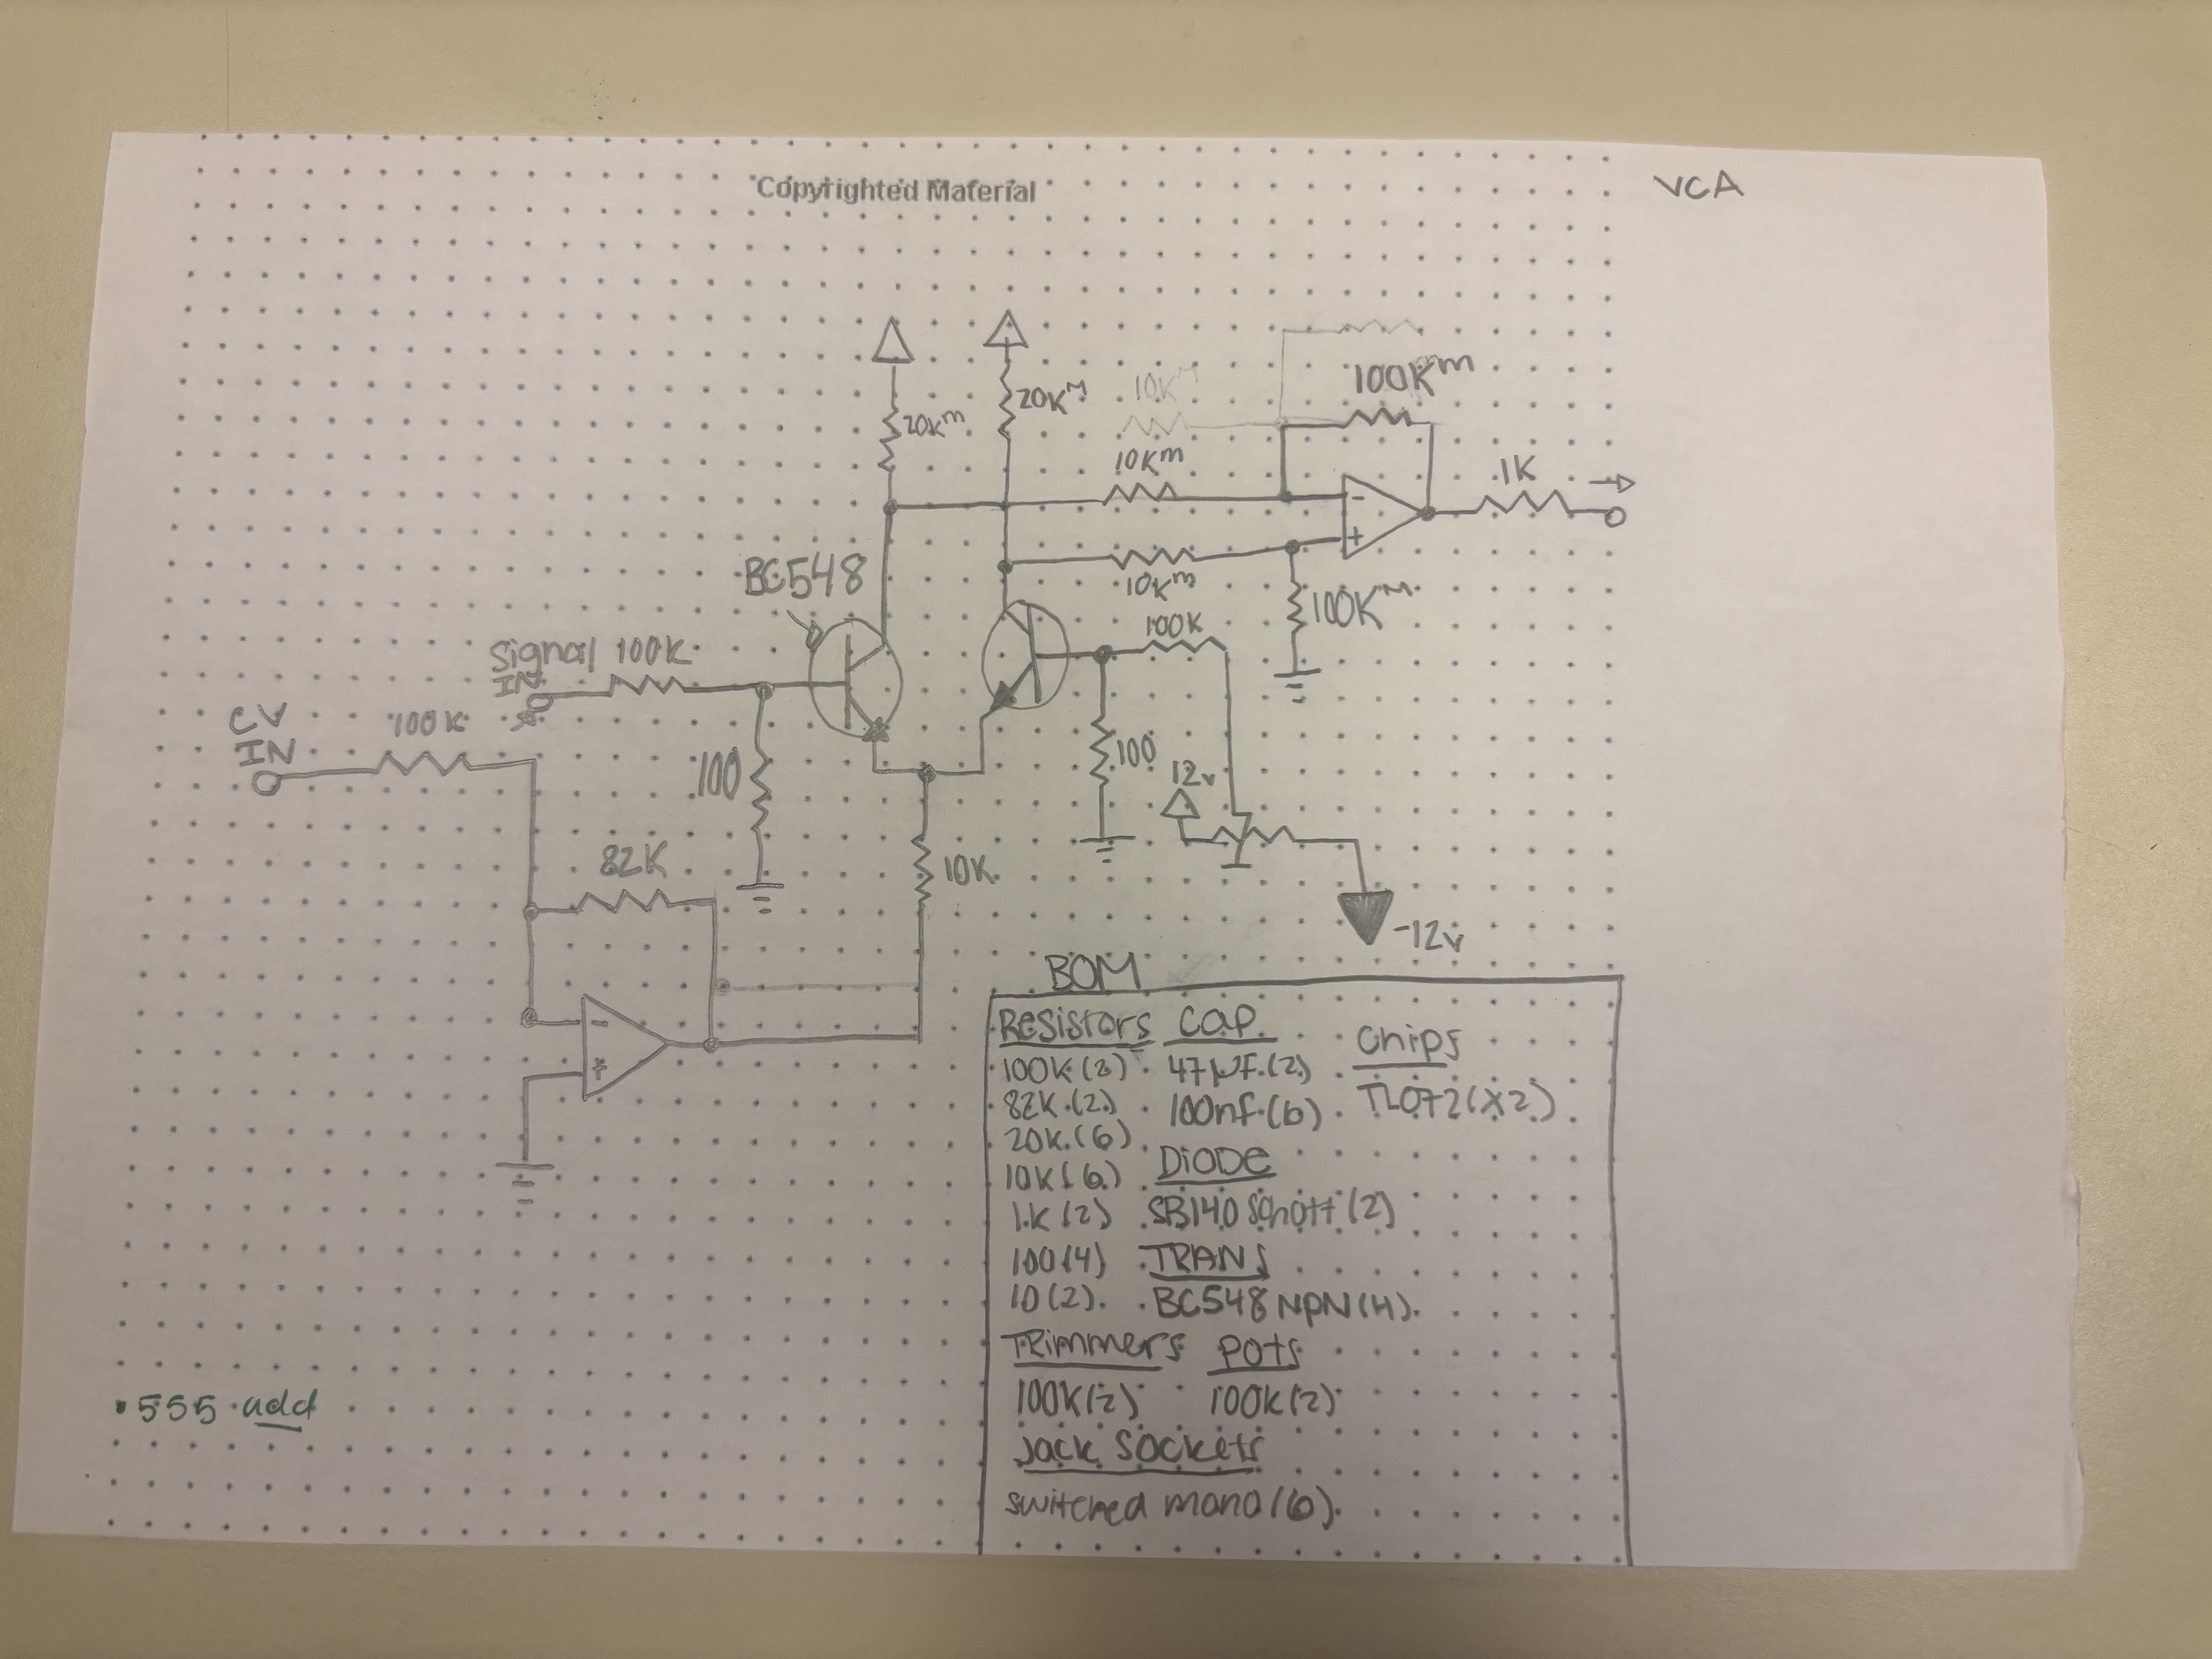 Copyrighted Material
VCA
100Km
20Km
20KM
10KM
10Km
1K
-
+
BC548
10Km
100KM
100K
Signal 100K
IN
CV
IN
100K
100
100
12v
82K
10K
-12v
-
+
BOM
Resistors Cap Chips
100K (2) 47µF (2)
82K (2) 100nf (6) TL072 (x2)
20K (6)
10K (6) Diode
1K (2) SB140 Schott (2)
100 (4) TRANS
10 (2) BC548 NPN (4)
Trimmers Pots
100K (2) 100K (2)
Jack Sockets
switched mono (6)
555 add